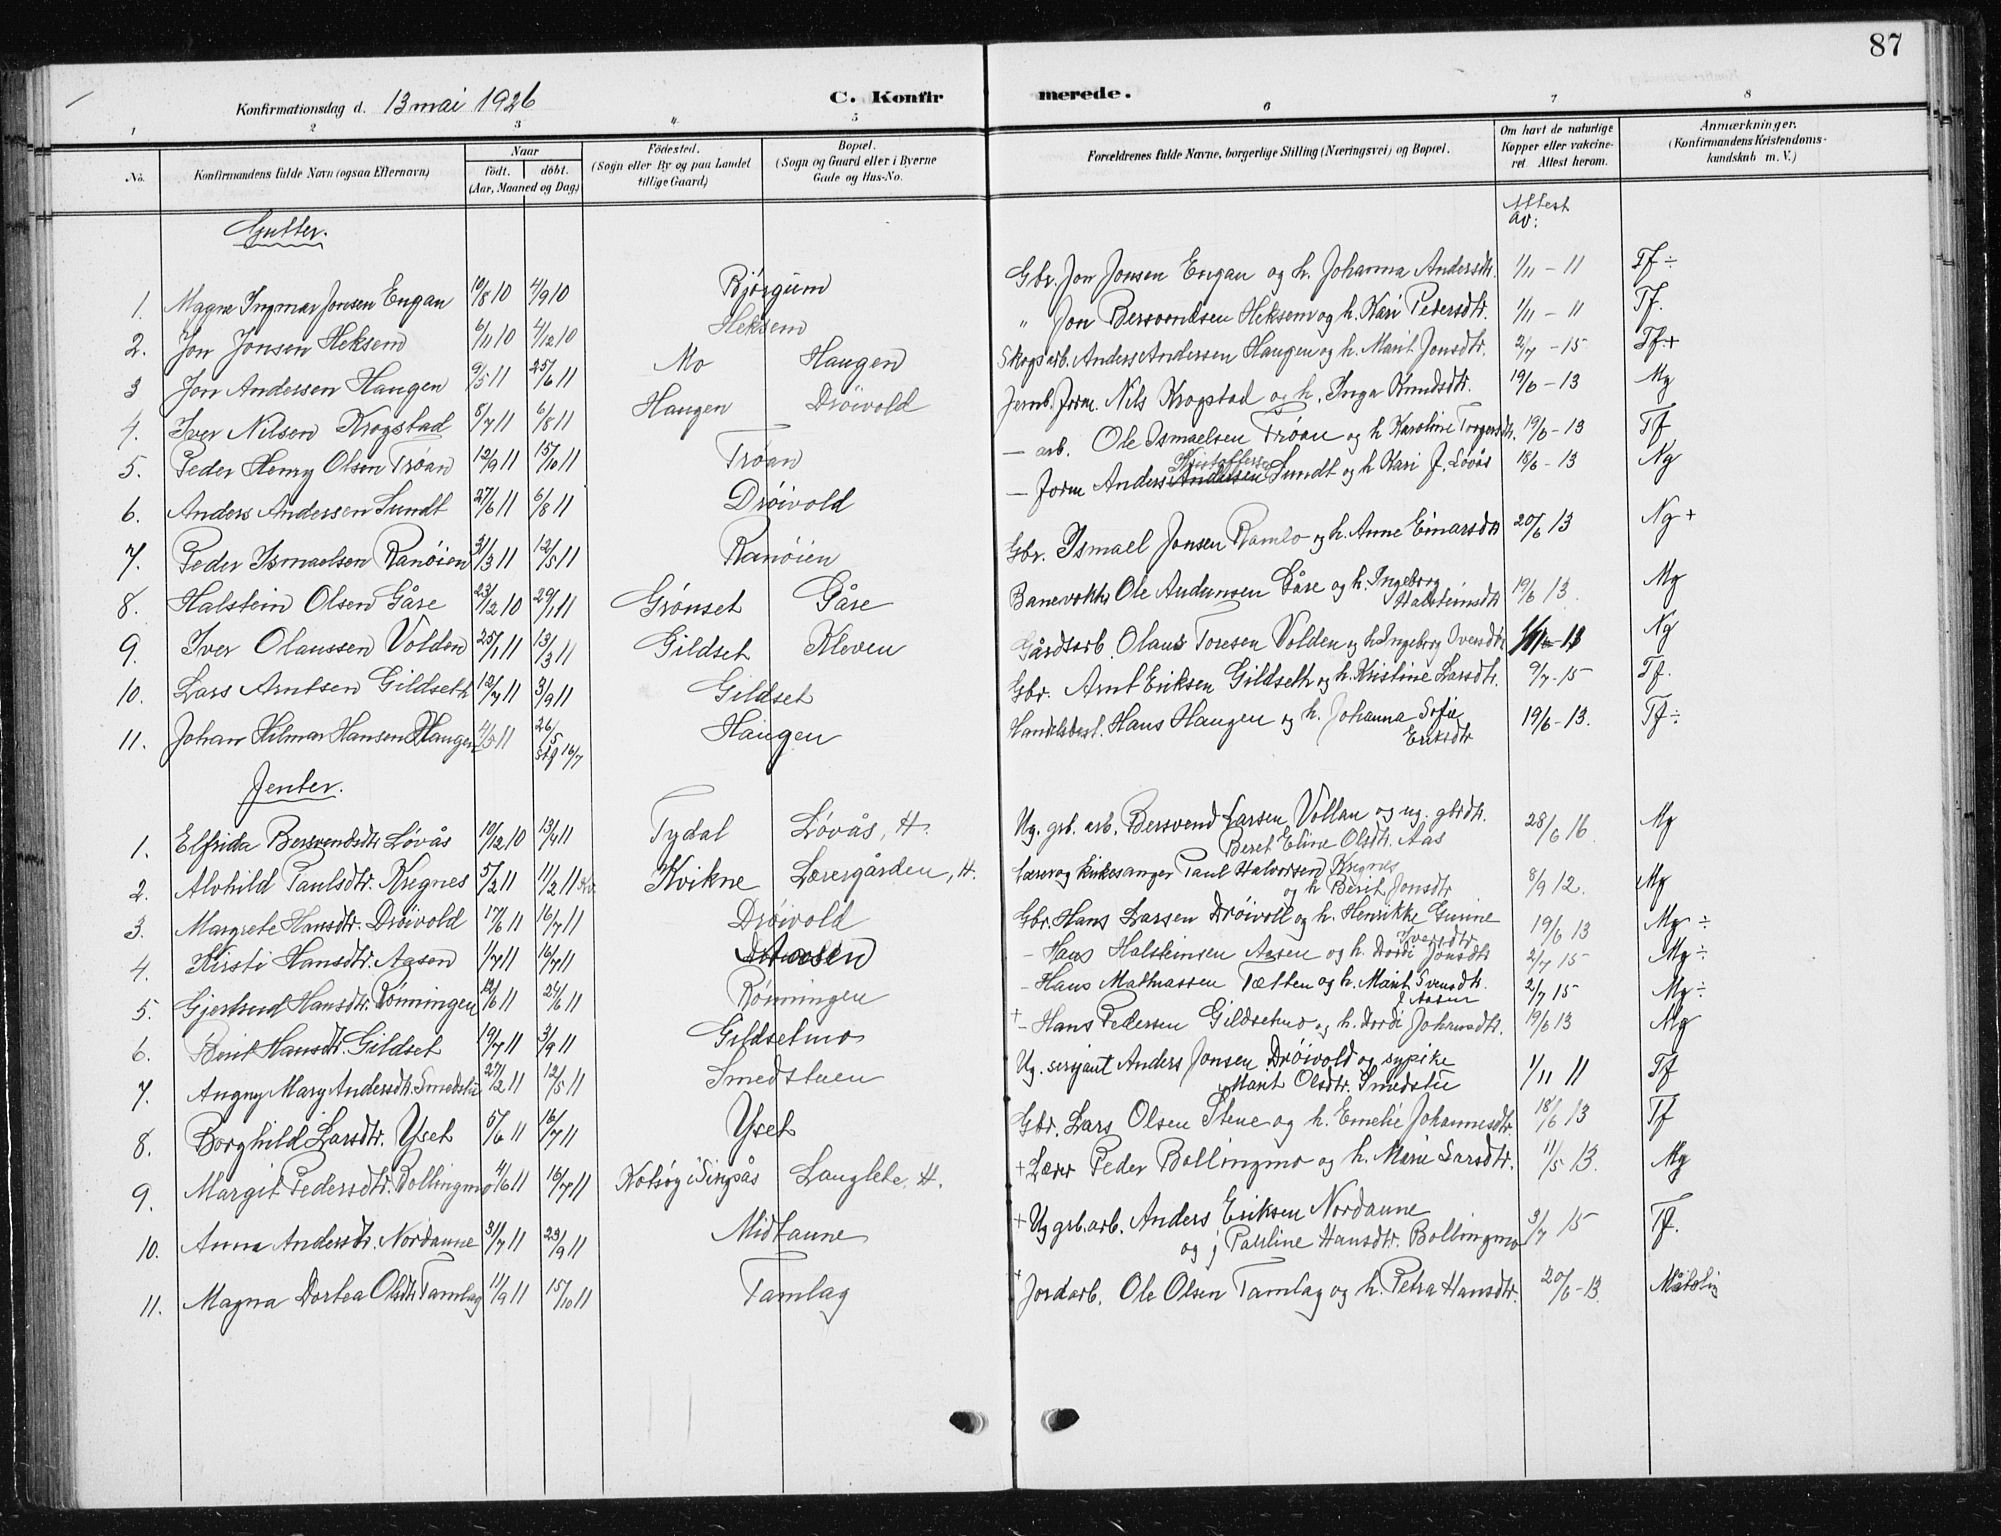 87
Konfirmationsdag d. 13 mai 1926 C. Konfirmerede.
1 2 3 4 5 6 7 8
No. Konfirmandens fulde Navn (ogsaa Efternavn) Naar født. døbt. (Aar, Maaned og Dag) Fødested. (Sogn eller By og paa Landet tillige Gaard) Bopæl. (Sogn og Gaard eller i Byerne Gade og Hus-No. Forældrenes fulde Navne, borgerlige Stilling (Næringsvei) og Bopæl. Om havt de naturlige Kopper eller vakcineret. Attest herom. Anmærkninger. (Konfirmandens Kristendomskundskab m. V.)
Attest av:
Gutter.
1. Magne Ingmar Jonsen Engan 10/8 10 4/9 10 Bjørgum Gbr. Jon Jonsen Engan og h. Johanna Andersdtr. 1/11 - 11 Tf ÷
2. Jon Jonsen Heksem 6/11 10 4/12 10 Heksem " Jon Bersvendsen Heksem og h. Kari Pedersdtr. 1/11 - 11 Tf.
3 Jon Andersen Haugen 9/5 11 25/6 11 Mo Haugen Skogsarb. Anders Andersen Haugen og h. Marit Jonsdtr. 2/7 - 15 Tf+
4. Iver Nilsen Krogstad 8/7 11 6/8 11 Haugen Drøivold Jernb. form. Nils Krogstad og h. Inga Knudsdtr. 19/6 - 13 Mg
5. Peder Henry Olsen Trøan 12/9 11 15/10 11 Trøan — arb. Ole Ismaelsen Trøan og h Karoline Torgersdtr. 19/6 - 13 Tf
6. Anders Andersen Sundt 27/6 11 6/8 11 Drøivold — form Anders Kristoffersen Sundt og h Kari J. Løvås 18/6 - 13 Ng
7. Peder Ismaelsen Ranøien 31/3 11 12/5 11 Ranøien Gbr. Ismael Jonsen Ramlo og h. Anne Einarsdtr 20/6 13 Ng +
8. Halstein Olsen Gåre 23/12 10 29/1 11 Grønset Gåre Banevokter Ole Andersen Gåre og h. Ingeborg Halsteinsdtr 19/6 13. Mg
9. Iver Olaussen Volden 25/1 11 13/3 11 Gildset Kleven Gårdsarb. Olaus Toresen Volden og h Ingeborg Iversdtr Ng
10. Lars Arntsen Gildseth 12/7 11 3/9 11 Gildset Gbr. Arnt Eriksen Gildseth og h. Kristine Larsdtr. 9/7 - 15 Tf.
11. Johan Hilmar Hansen Haugen 4/5 11 26/5 stf 16/7 Haugen Handelsbest. Hans Haugen og h. Johanna Sofie Eriksdtr 19/6 - 13. Tf ÷
Jenter.
1. Elfrida Bersvendsdtr Løvås 10/12 10 13/4 11 Tydal Løvås, H. Ug. grb. arb. Bersvend Larsen Vollan og ug. gbrdtr. Beret Eline Olsdtr. Aas 28/6 16. Mg
2. Alvhild Paulsdtr. Kregnes 5/2 11 11/2 11 Kv. Kvikne Lærergården, H. Lærer og kirkesanger Paul Halvorsen Kregnes og h Berit Jonsdtr 8/9 12. Mg
3. Margrete Hansdtr. Drøivold 17/6 11 16/7 11 Drøivold Gbr. Hans Larsen Drøivoll og h. Henrikke Gurine Iversdtr 19/6 13 Mg ÷
4. Kirsti Hansdtr. Aasen 1/7 11 16/7 11 Aasen — Hans Halsteinsen Aasen og h. Dordi Jonsdtr 2/7 15 Mg ÷
5. Gjertrud Hansdtr. Rønningen 12/6 11 24/6 11 Rønningen — Hans Mathiassen Tætten og h. Marit Svensdtr. f. Aasen 2/7 15 Mg ÷
6. Berit Hansdtr. Gildset 19/7 11 3/9 11 Gildsetmo + — Hans Pedersen Gildsetmo og h. Dordi Johansdtr. 19/6 13 Mg
7. Angny Mary Andersdtr. Smedstu 27/2 11 12/5 11 Smedstuen Ug. serjant Anders Jonsen Drøivold og sypike Marit Olsdtr. Smedstu 1/11 11 Tf
8. Borghild Larsdtr. Yset 5/6 11 16/7 11 Yset Gbr. Lars Olsen Stene og h. Emelie Johannesdtr. 18/6 13 Tf
9. Margit Pedersdtr. Bollingmo 4/6 11 16/7 11 Kotsøy i Singsås Langlete, H. + Lærer Peder Bollingmo og h. Marie Larsdtr. 11/5 13. Mg
10. Anna Andersdtr. Nordaune 31/7 11 23/9 11 Midtaune + Ug grb. arb. Anders Eriksen Nordaune og j Pauline Hansdtr. Bollingmo 3/7 15 Tf.
11. Magna Dortea Olsdtr Tamlag 11/9 11 15/10 11 Tamlag + Jordarb. Ole Olsen Tamlag og h. Petra Hansdtr. 20/6 - 13. Måtelig